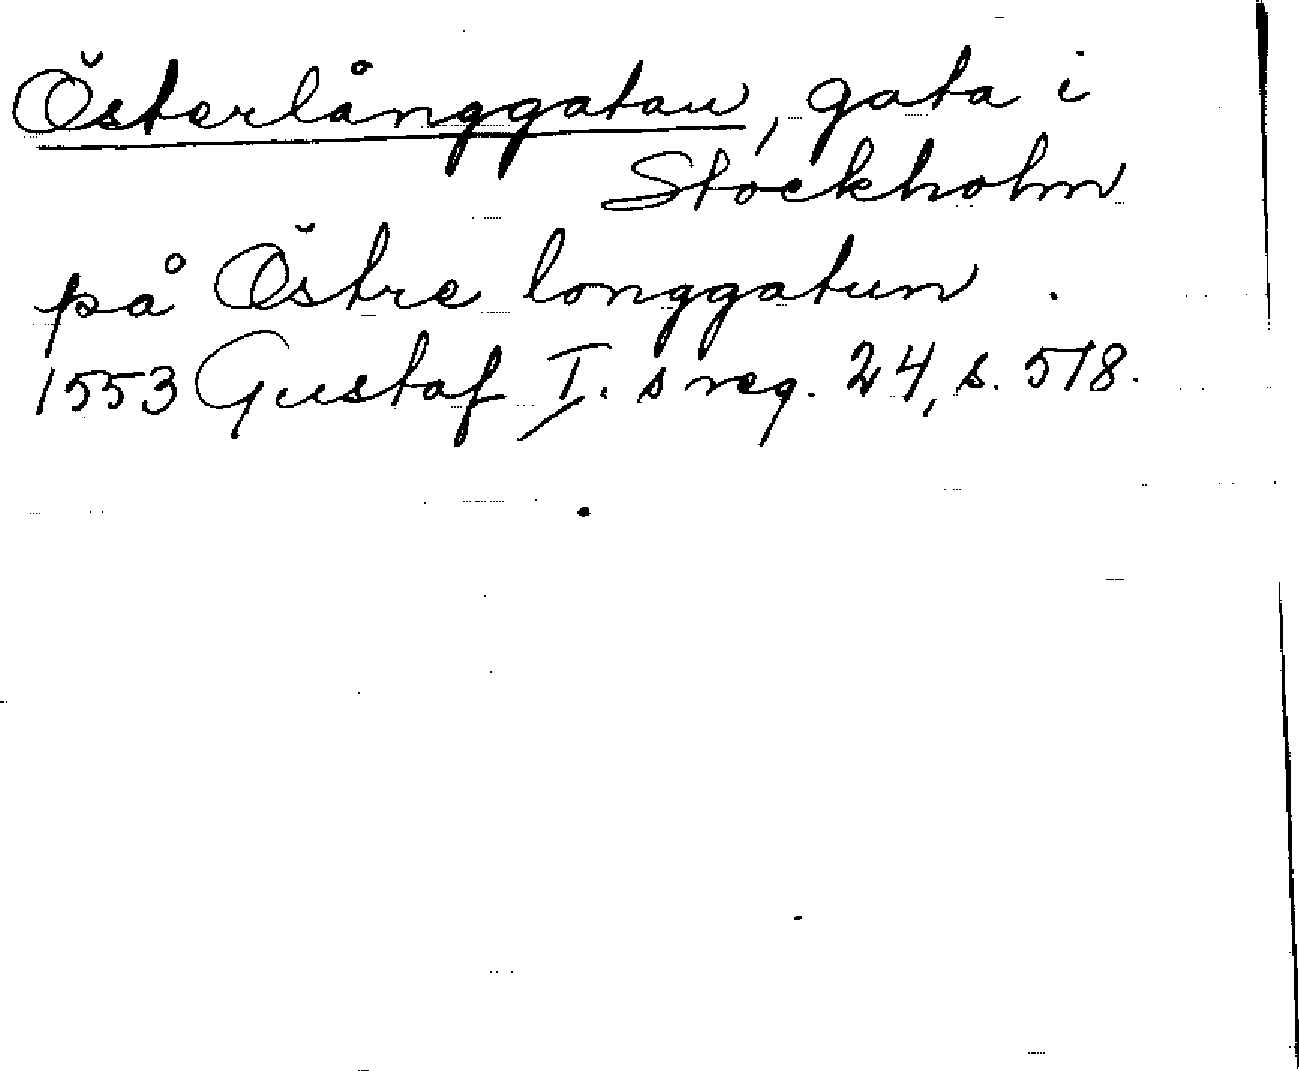 Österlånggatan, gata i
Stockholm
på Östre longgatun.
1553 Gustaf I. s reg. 24, s. 518.